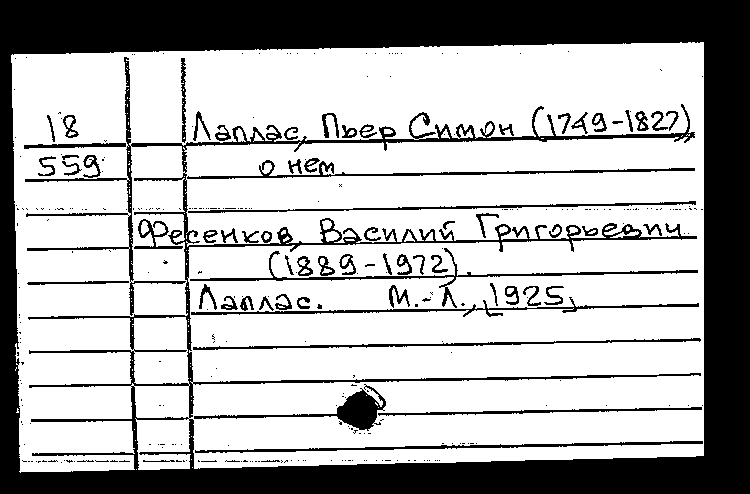 18 Лаплас, Пьер Симон (1749-1827),
559 о нем.
Фесенков, Василий Григорьевич
(1889-1972).
Лаплас. М.-Л., [1925]